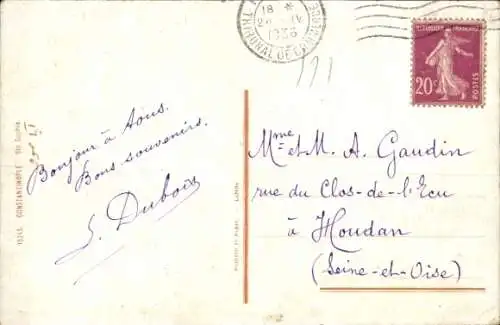 18 *
1936
TRIBUNAL DE COMMERCE
RÉPUBLIQUE FRANÇAISE
20c
POSTES
Bonjour à tous.
Bons souvenirs.
S. Dubois
Mme et M. A. Gaudin
rue du Clos-de-l'Ecu
à Houdan
(Seine-et-Oise)